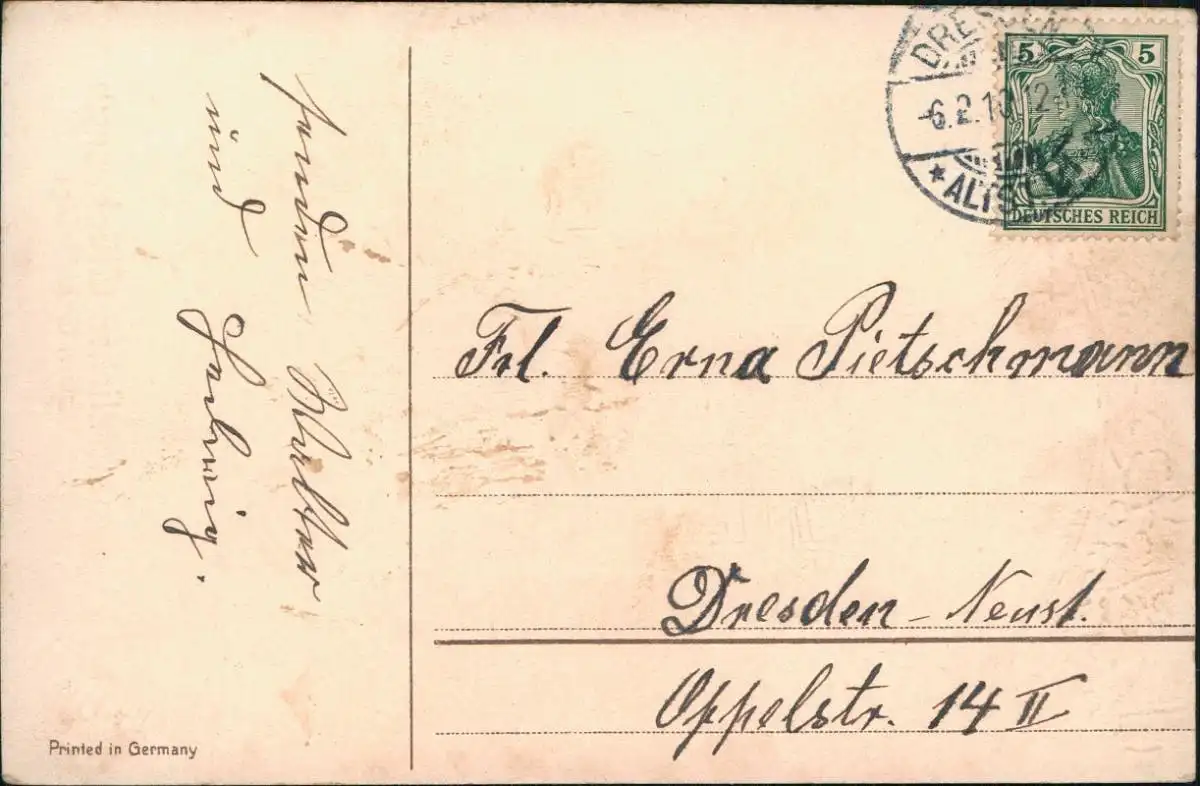 senden Walther
und Hedwig.
Printed in Germany
DRESDEN
-6.2.10.12
*ALTST.
5 5
DEUTSCHES REICH
Frl. Erna Pietschmann
Dresden-Neust.
Oppelstr. 14 II